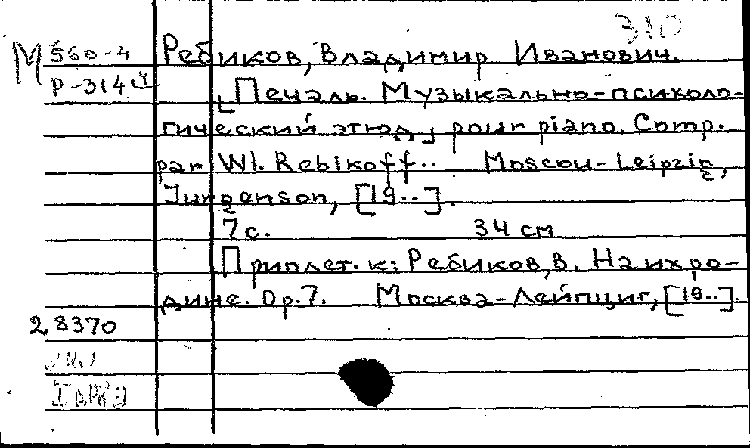 310
М 560-4 Ребиков, Владимир Иванович.
Р-314 [Печаль. Музыкально-психоло-
гический этюд] pour piano. Comp.
par Wl. Rebikoff.. Moscou-Leipzig,
Jurgenson, [19..].
7 с. 34 см
Приплет. к: Ребиков, В. На их ро-
дине. Op. 7. Москва-Лейпциг, [19..].
28370